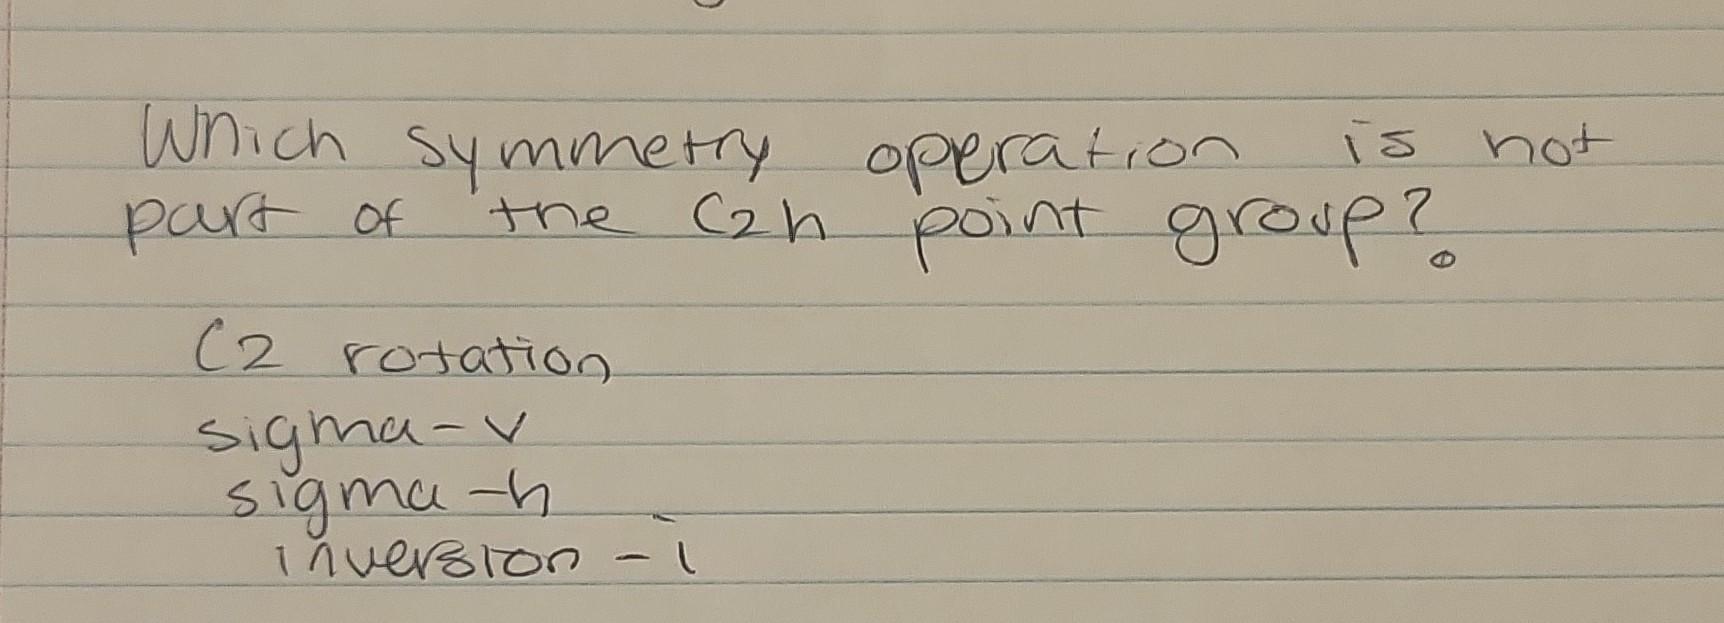 Which symmetry operation is not
part of the C2h point group?
C2 rotation
sigma-v
sigma-h
inversion - i